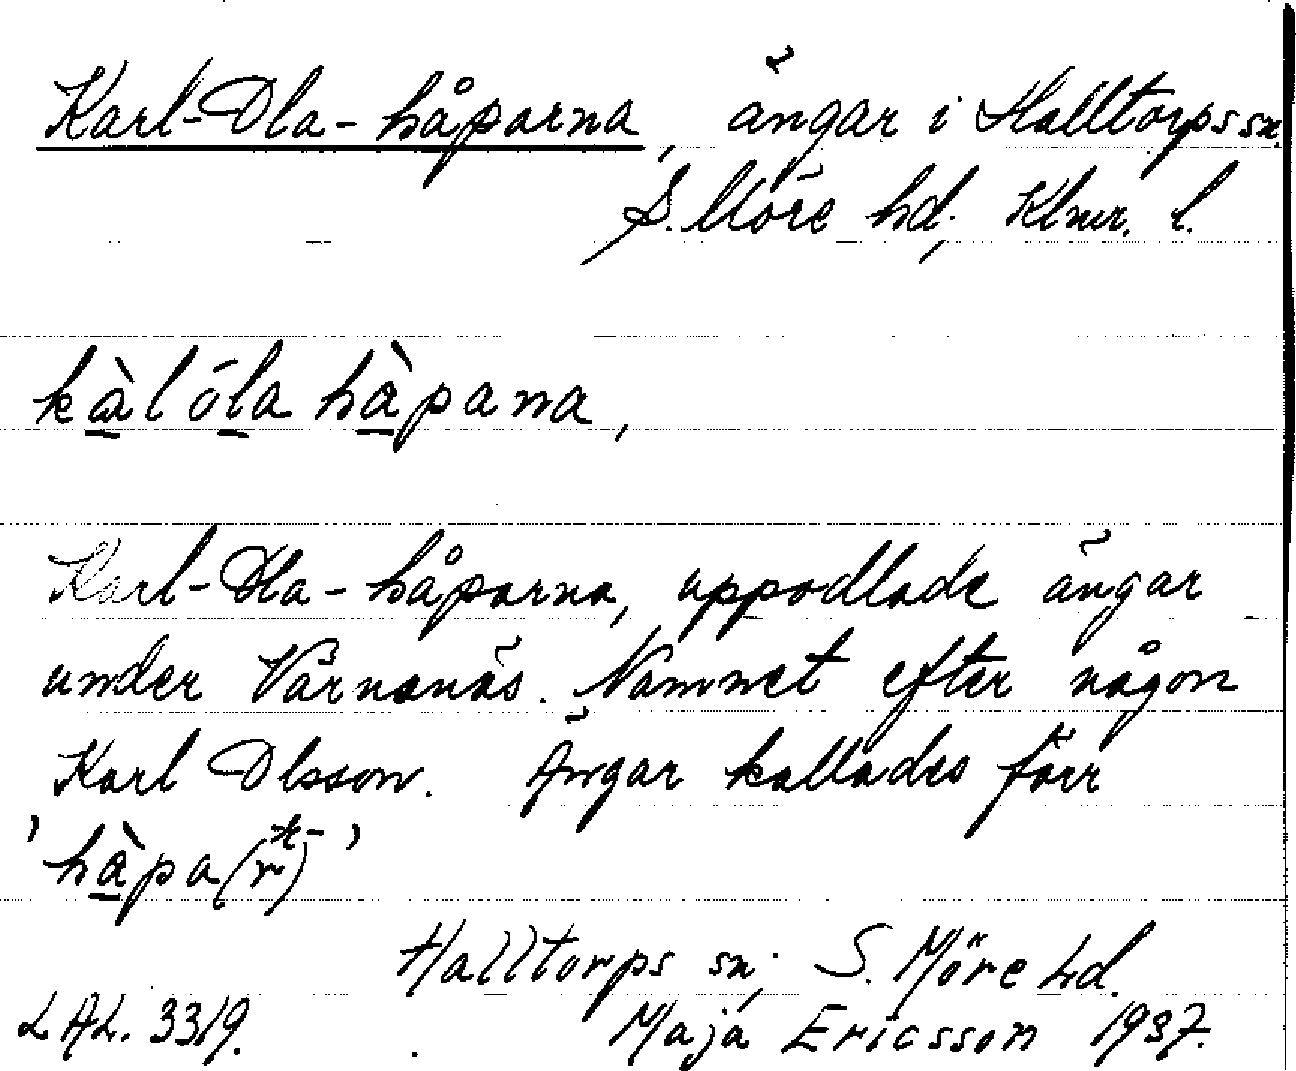 Karl-Ola-håparna, ängar i Halltorps sn.
S. Möre hd; Klmr. l.
kàl óla hàpana,
Karl-Ola-håparna, uppodlade ängar
under Värnanäs. Namnet efter någon
Karl Olsson. Ängar kallades förr
'hàpa(r)'
Halltorps sn; S. Möre hd.
LAL. 3319. Maja Ericsson 1937.